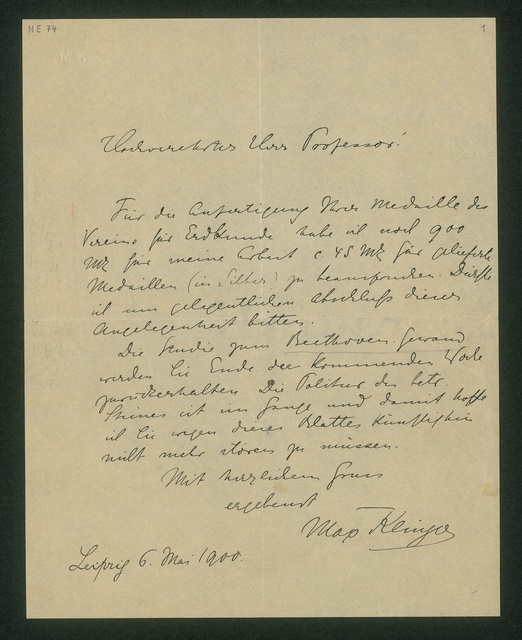 NE 74
1
MK
Hochverehrter Herr Professor!
Für die Anfertigung Ihrer Medaille des
Vereins für Erdkunde habe ich noch 900
Mk für meine Arbeit c. 45 Mk für gelieferte
Medaillen (in Silber) zu beanspruchen. Dürfte
ich um gelegentlichen Abschluß dieser
Angelegenheit bitten.
Die Studie zum Beethoven-Gewand
werden Sie Ende der kommenden Woche
zurückerhalten. Die Politur des betr.
Steines ist im Gange und damit hoffe
ich Sie wegen dieses Blattes künftighin
nicht mehr stören zu müssen.
Mit herzlichem Gruss
ergebenst
Max Klinger
Leipzig 6. Mai 1900.